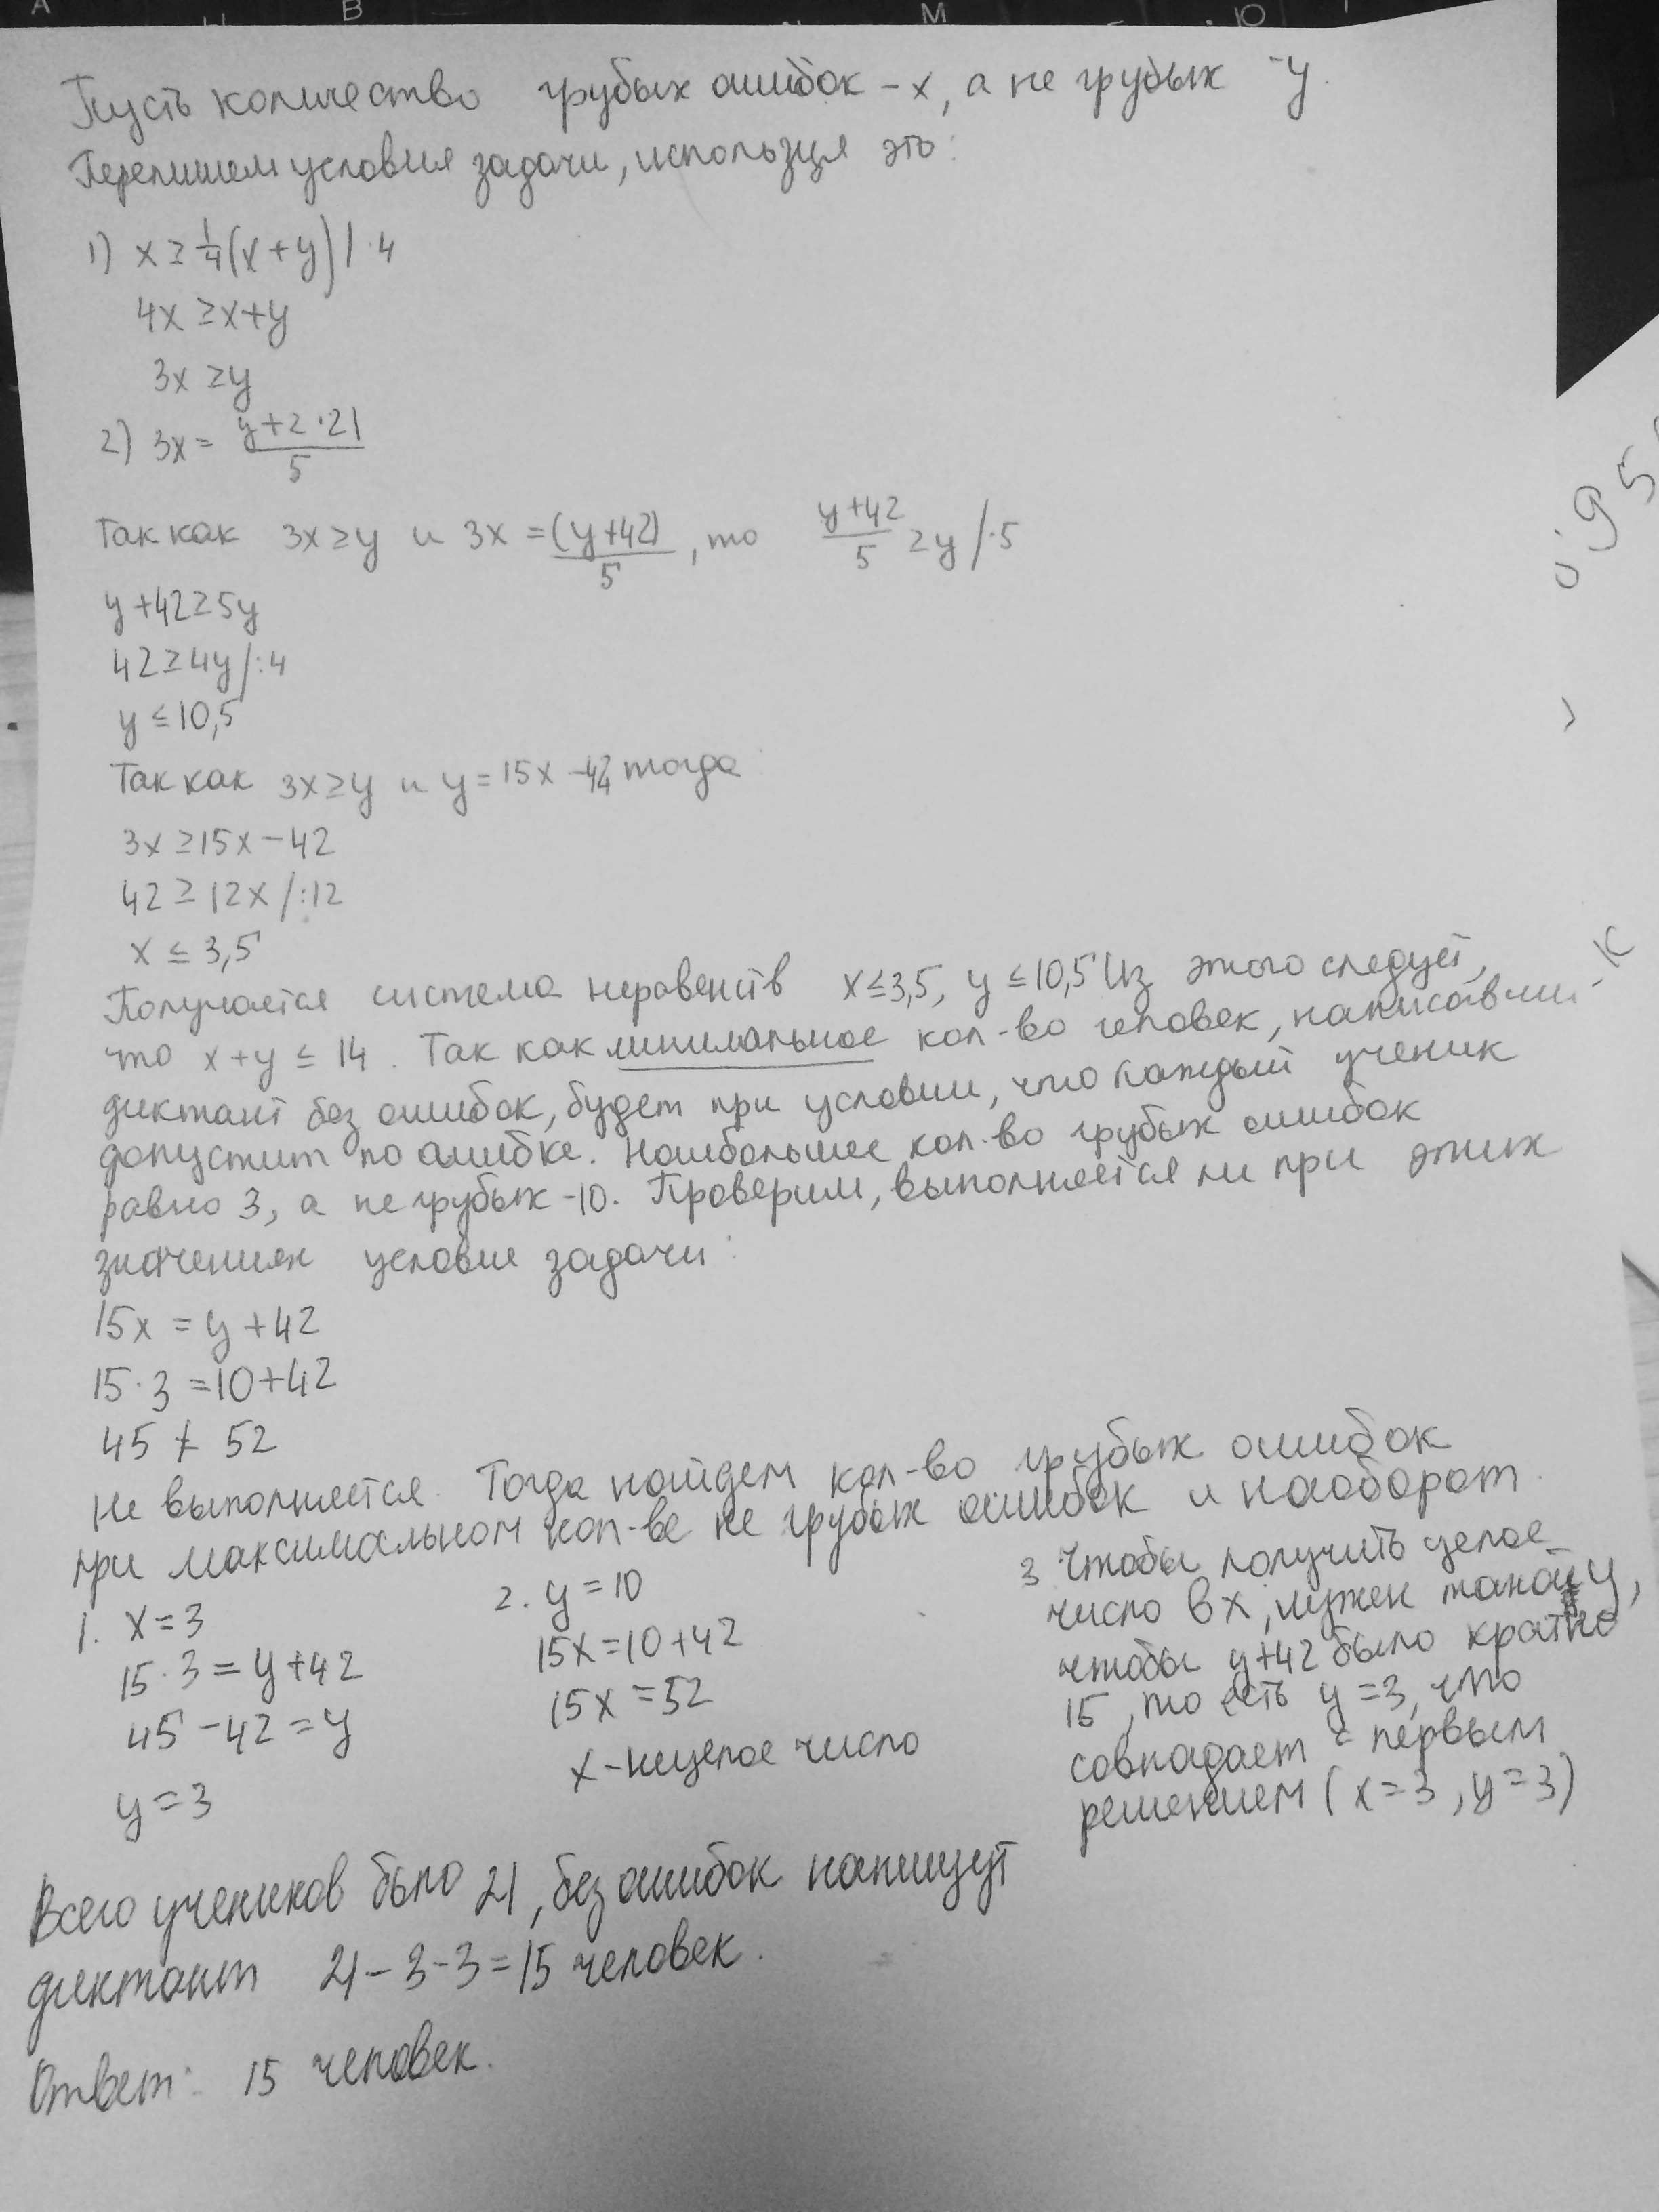 Пусть количество грубых ошибок - x, а не грубых - y.
Перепишем условия задачи, используя это:
1) x ≥ 1/4(x+y) | ·4
4x ≥ x+y
3x ≥ y
2) 3x = (y+2·21)/5
Так как 3x ≥ y и 3x = (y+42)/5, то (y+42)/5 ≥ y /·5
y+42 ≥ 5y
42 ≥ 4y /:4
y ≤ 10,5
Так как 3x ≥ y и y = 15x - 42 тогда
3x ≥ 15x - 42
42 ≥ 12x /:12
x ≤ 3,5
Получается система неравенств x ≤ 3,5, y ≤ 10,5 Из этого следует,
что x+y ≤ 14. Так как минимальное кол-во человек, написавших
диктант без ошибок, будет при условии, что каждый ученик
допустит по ошибке. Наибольшее кол-во грубых ошибок
равно 3, а не грубых - 10. Проверим, выполняется ли при этих
значениях условие задачи:
15x = y+42
15·3 = 10+42
45 ≠ 52
Не выполняется. Тогда найдем кол-во грубых ошибок
при максимальном кол-ве не грубых ошибок и наоборот.
1. x = 3
15·3 = y+42
45-42 = y
y = 3
2. y = 10
15x = 10+42
15x = 52
x - нецелое число
3 Чтобы получить целое
число в x, нужен такой y,
чтобы y+42 было кратно
15, то есть y = 3, что
совпадает с первым
решением (x = 3, y = 3)
Всего учеников было 21, без ошибок напишут
диктант 21 - 3 - 3 = 15 человек.
Ответ: 15 человек.